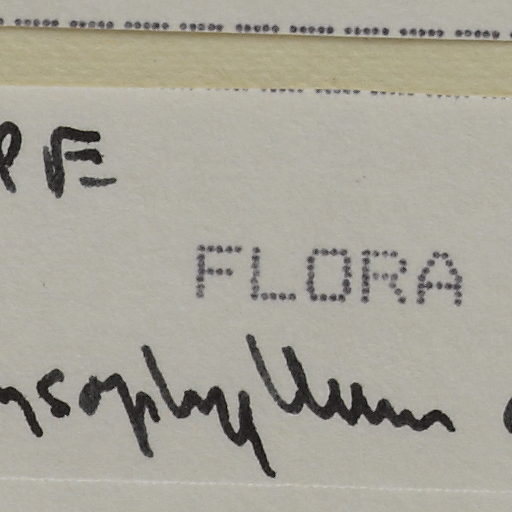 PE
FLORA
ysophyllum